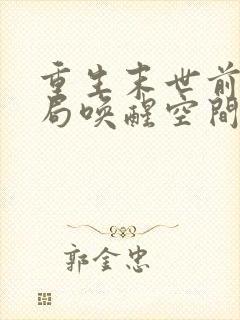 重生末世前
局唤醒空間
郭金忠